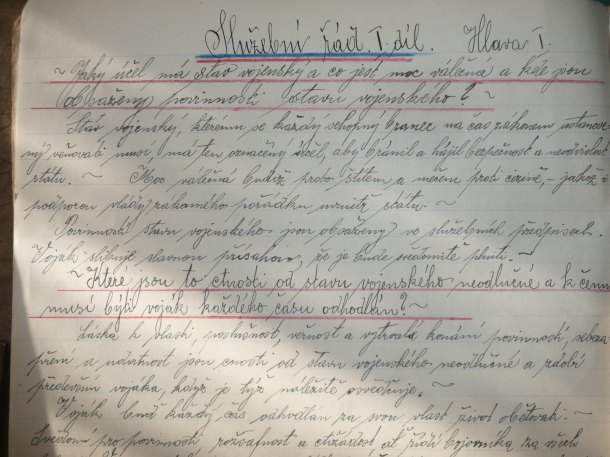 Služební řád. I. díl. Hlava I.
~ Jaký účel má stav vojenský a co jest moc válečná a kde jsou
obsaženy povinnosti stavu vojenského? ~
Stav vojenský, kterému se každý schopný branec na čas zákonem ustanove-
ný věnovati musí, má ten označený účel, aby bránil a hájil bezpečnost a neodvislost
státu. ~ Moc válečná budiž proto štítem a mečem proti cizině, – jakož i
podporou vlády zákonného pořádku uvnitř státu.
Povinnosti stavu vojenského jsou obsaženy ve služebních předpisech.
Voják slibuje slavnou přísahou, že je bude svědomitě plniti. ~
~ Které jsou to ctnosti od stavu vojenského neodlučné a k čemu
musí býti voják každého času odhodlán? ~
Láska k vlasti poslušnost, věrnost a vytrvalé konání povinností, sebeza-
pření a udatnost jsou cnosti od stavu vojenského neodlučné a zdobí
především vojáka, když je týž náležitě osvědčuje. ~
Voják buď každý čas odhodlán za svou vlast život obětovati. ~
pro povinnosti, rozšafnost a ctižádost, ať řídí bojovníka za všech